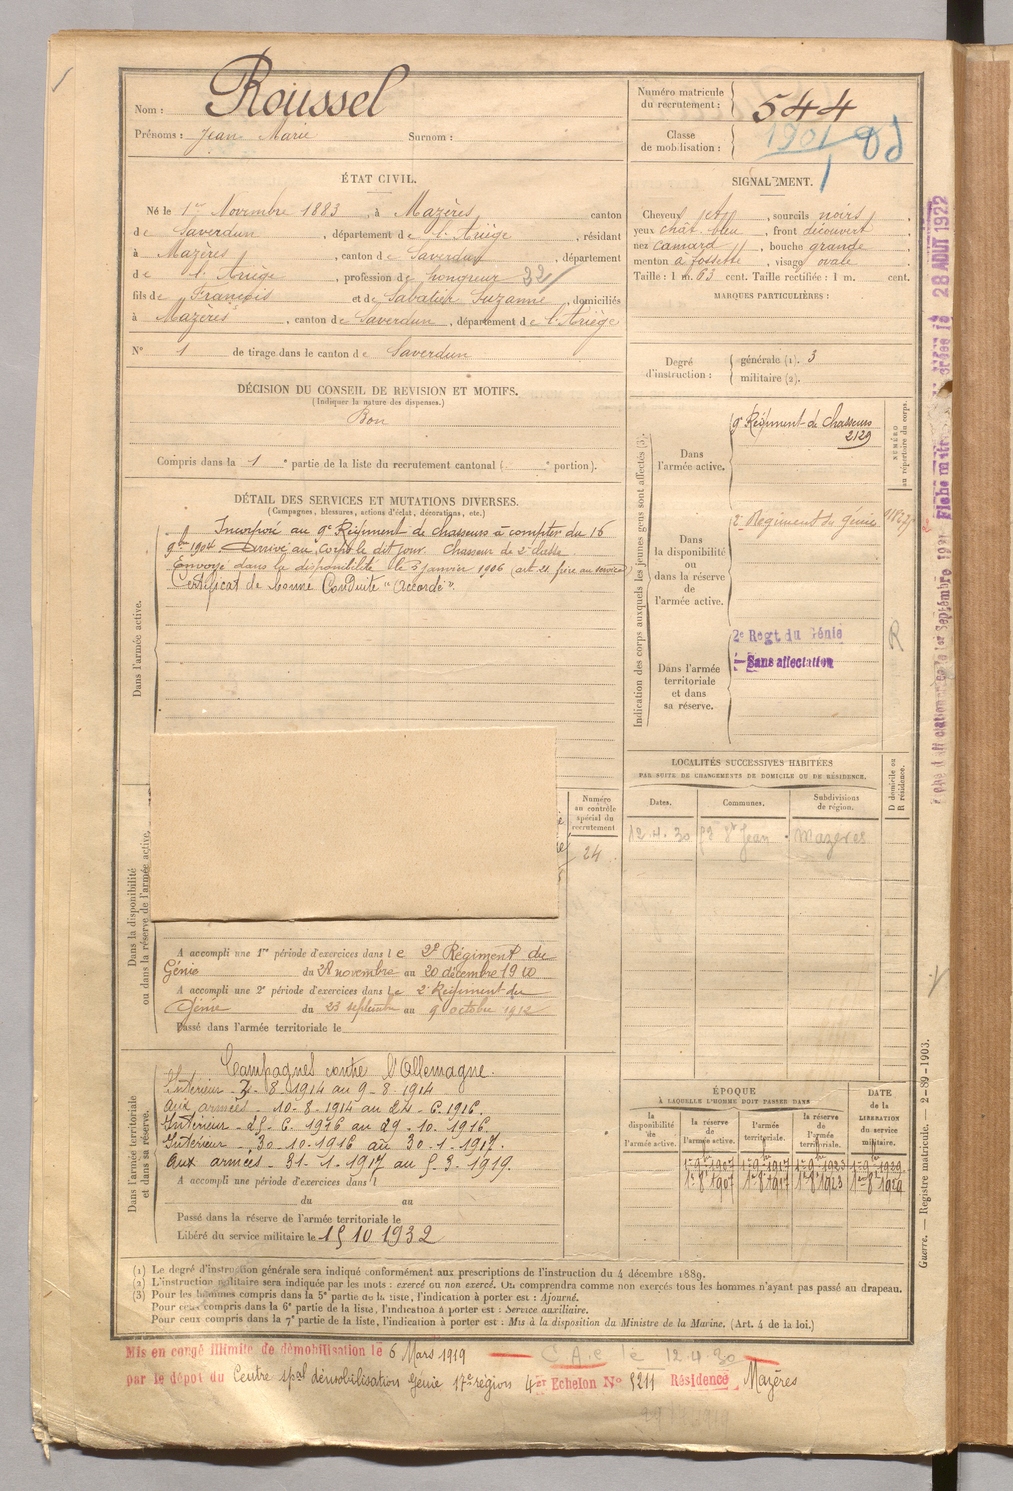 Nom : Roussel
Prénoms : Jean Marie Surnom :
Numéro matricule du recrutement : 544
Classe de mobilisation : 1901
ÉTAT CIVIL.
Né le 1er Novembre 1883, à Mazères, canton
de Saverdun, département de l'Ariège, résidant
à Mazères, canton de Saverdun, département
de l'Ariège, profession de hongreur 32
fils de François et de Sabatier Suzanne, domiciliés
à Mazères, canton de Saverdun, département de l'Ariège
N° 1 de tirage dans le canton de Saverdun
SIGNALEMENT.
Cheveux, sourcils noirs,
yeux chat. bleu, front découvert,
nez camard, bouche grande,
menton à fossette, visage ovale.
Taille : 1 m. 63 cent. Taille rectifiée : 1 m. cent.
MARQUES PARTICULIÈRES :
Degré d'instruction : générale (1). 3
militaire (2).
DÉCISION DU CONSEIL DE REVISION ET MOTIFS.
(Indiquer la nature des dispenses.)
Bon
Compris dans la 1e partie de la liste du recrutement cantonal ( e portion).
DÉTAIL DES SERVICES ET MUTATIONS DIVERSES.
(Campagnes, blessures, actions d'éclat, décorations, etc.)
Dans l'armée active.
Incorporé au 9e Régiment de chasseurs à compter du 16
9bre 1904. Arrivé au Corps le dit jour. Chasseur de 2e classe.
Envoyé dans la disponibilité le 3 janvier 1906 (art. 21. frère au service)
Certificat de bonne Conduite "Accordé".
Indication des corps auxquels les jeunes gens sont affectés (3).
NUMÉRO au répertoire du corps.
Dans l'armée active.
9e Régiment de chasseurs
2129
Dans la disponibilité ou dans la réserve de l'armée active.
2e Régiment du génie
Dans l'armée territoriale et dans sa réserve.
2e Regt du Génie
Sans affectation
R
LOCALITÉS SUCCESSIVES HABITÉES
PAR SUITE DE CHANGEMENTS DE DOMICILE OU DE RÉSIDENCE.
Dates. Communes. Subdivisions de région. D domicile ou R résidence.
12.4.30 St Jean Mazères
Dans la disponibilité ou dans la réserve de l'armée active.
Numéro au contrôle spécial du recrutement
24
A accompli une 1re période d'exercices dans le 2e Régiment du
Génie du 28 novembre au 20 décembre 1910
A accompli une 2e période d'exercices dans le 2e Régiment du
Génie du 23 septembre au 9 octobre 1912
Passé dans l'armée territoriale le
Dans l'armée territoriale et dans sa réserve.
Campagnes contre l'Allemagne.
Intérieur - 7-8-1914 au 9-8-1914
Aux armées - 10-8-1914 au 24-6-1916.
Intérieur - 25-6-1916 au 29-10-1916.
Intérieur - 30-10-1916 au 30-1-1917.
Aux armées - 31-1-1917 au 5-3-1919.
A accompli une période d'exercices dans l
du au
Passé dans la réserve de l'armée territoriale le
Libéré du service militaire le 15 10 1932
ÉPOQUE
A LAQUELLE L'HOMME DOIT PASSER DANS
la disponibilité de l'armée active. la réserve de l'armée active. l'armée territoriale. la réserve de l'armée territoriale.
DATE de la LIBÉRATION du service militaire.
1er 9bre 1907 1er 9bre 1917 1er 9bre 1923 1er 9bre 1929
1er 8bre 1907 1er 8bre 1917 1er 8bre 1923 1er 8bre 1929
(1) Le degré d'instruction générale sera indiqué conformément aux prescriptions de l'instruction du 4 décembre 1889.
(2) L'instruction militaire sera indiquée par les mots : exercé ou non exercé. On comprendra comme non exercés tous les hommes n'ayant pas passé au drapeau.
(3) Pour les hommes compris dans la 5e partie de la liste, l'indication à porter est : Ajourné.
Pour ceux compris dans la 6e partie de la liste, l'indication à porter est : Service auxiliaire.
Pour ceux compris dans la 7e partie de la liste, l'indication à porter est : Mis à la disposition du Ministre de la Marine. (Art. 4 de la loi.)
Mis en congé illimité de démobilisation le 6 Mars 1919
C.A.C le 12-4-30
par le dépot du Centre spal démobilisation Génie 17e région 4er Echelon N° 5211 Résidence Mazères
Guerre. — Registre matricule. — 2-89-1903.
28 AOUT 1922